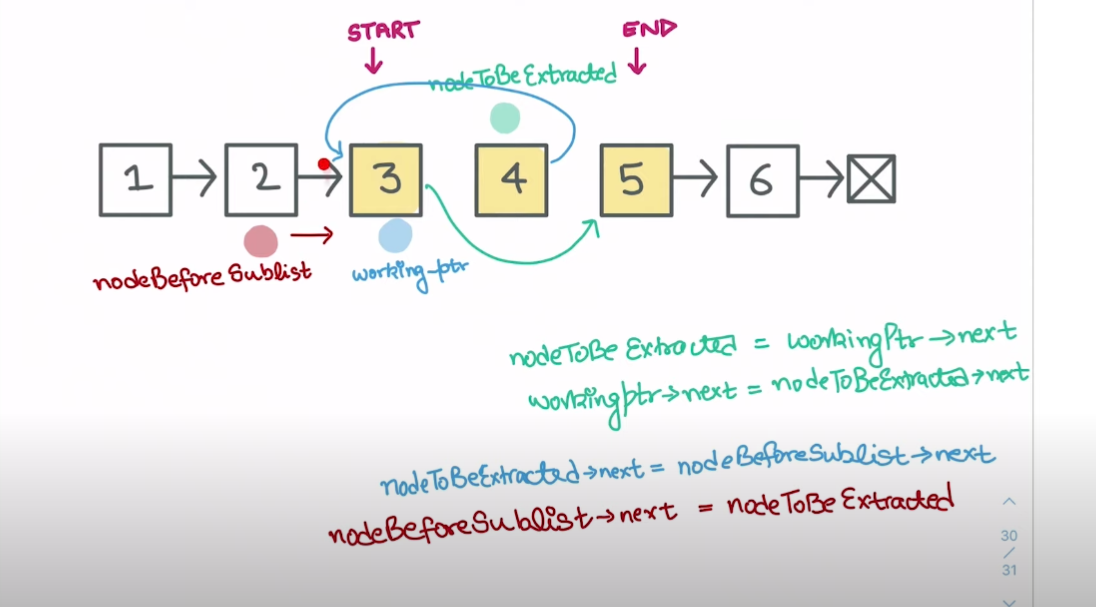 START
END
nodeToBeExtracted
1 → 2 → 3 4 5 → 6 →
nodeBeforeSublist
working-ptr
nodeToBeExtracted = workingPtr→next
workingptr→next = nodeToBeExtracted→next
nodeToBeExtracted→next = nodeBeforeSublist→next
nodeBeforeSublist→next = nodeToBeExtracted
30
/
31